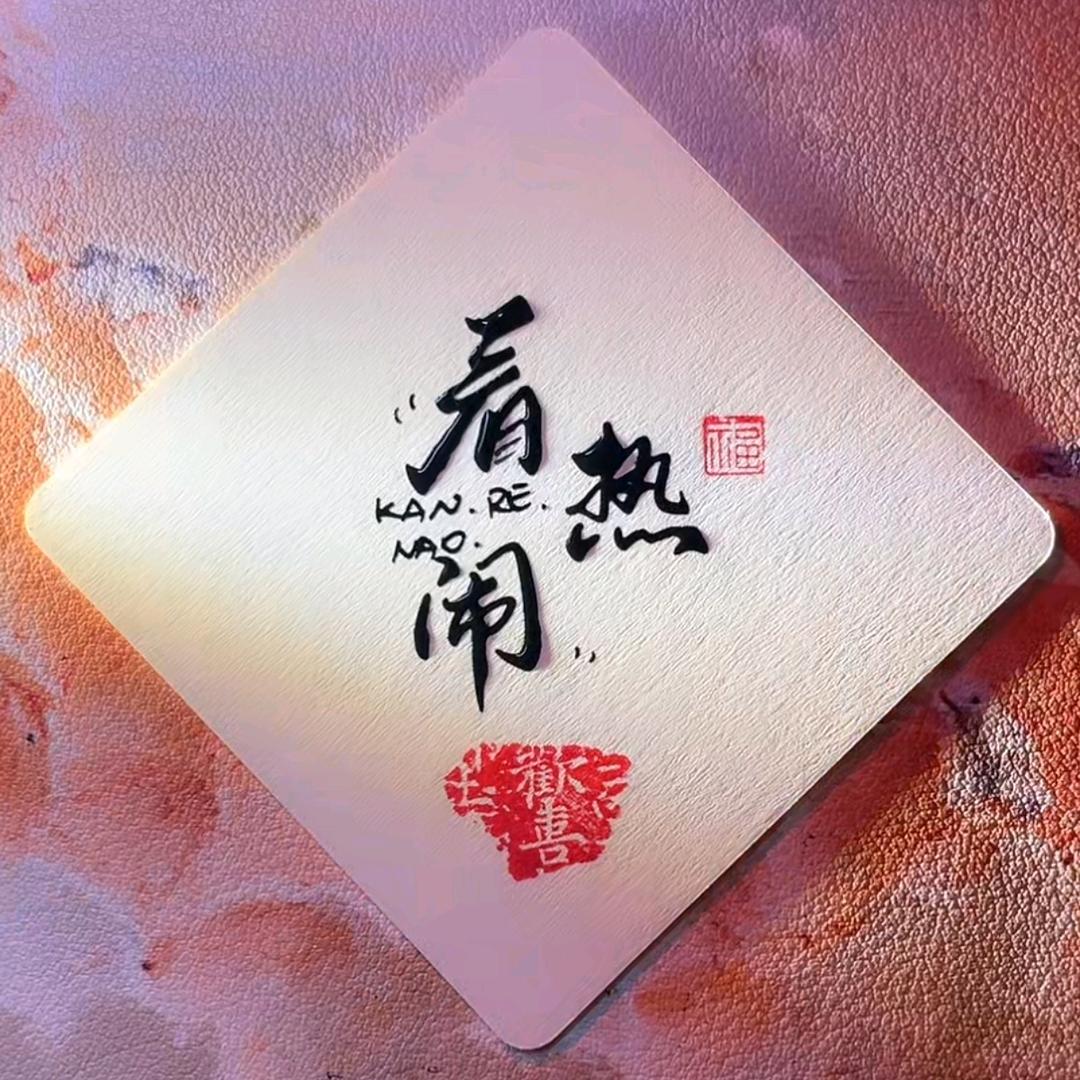 “看
热
KAN.RE.
NAO.
闹”
福
歡
喜